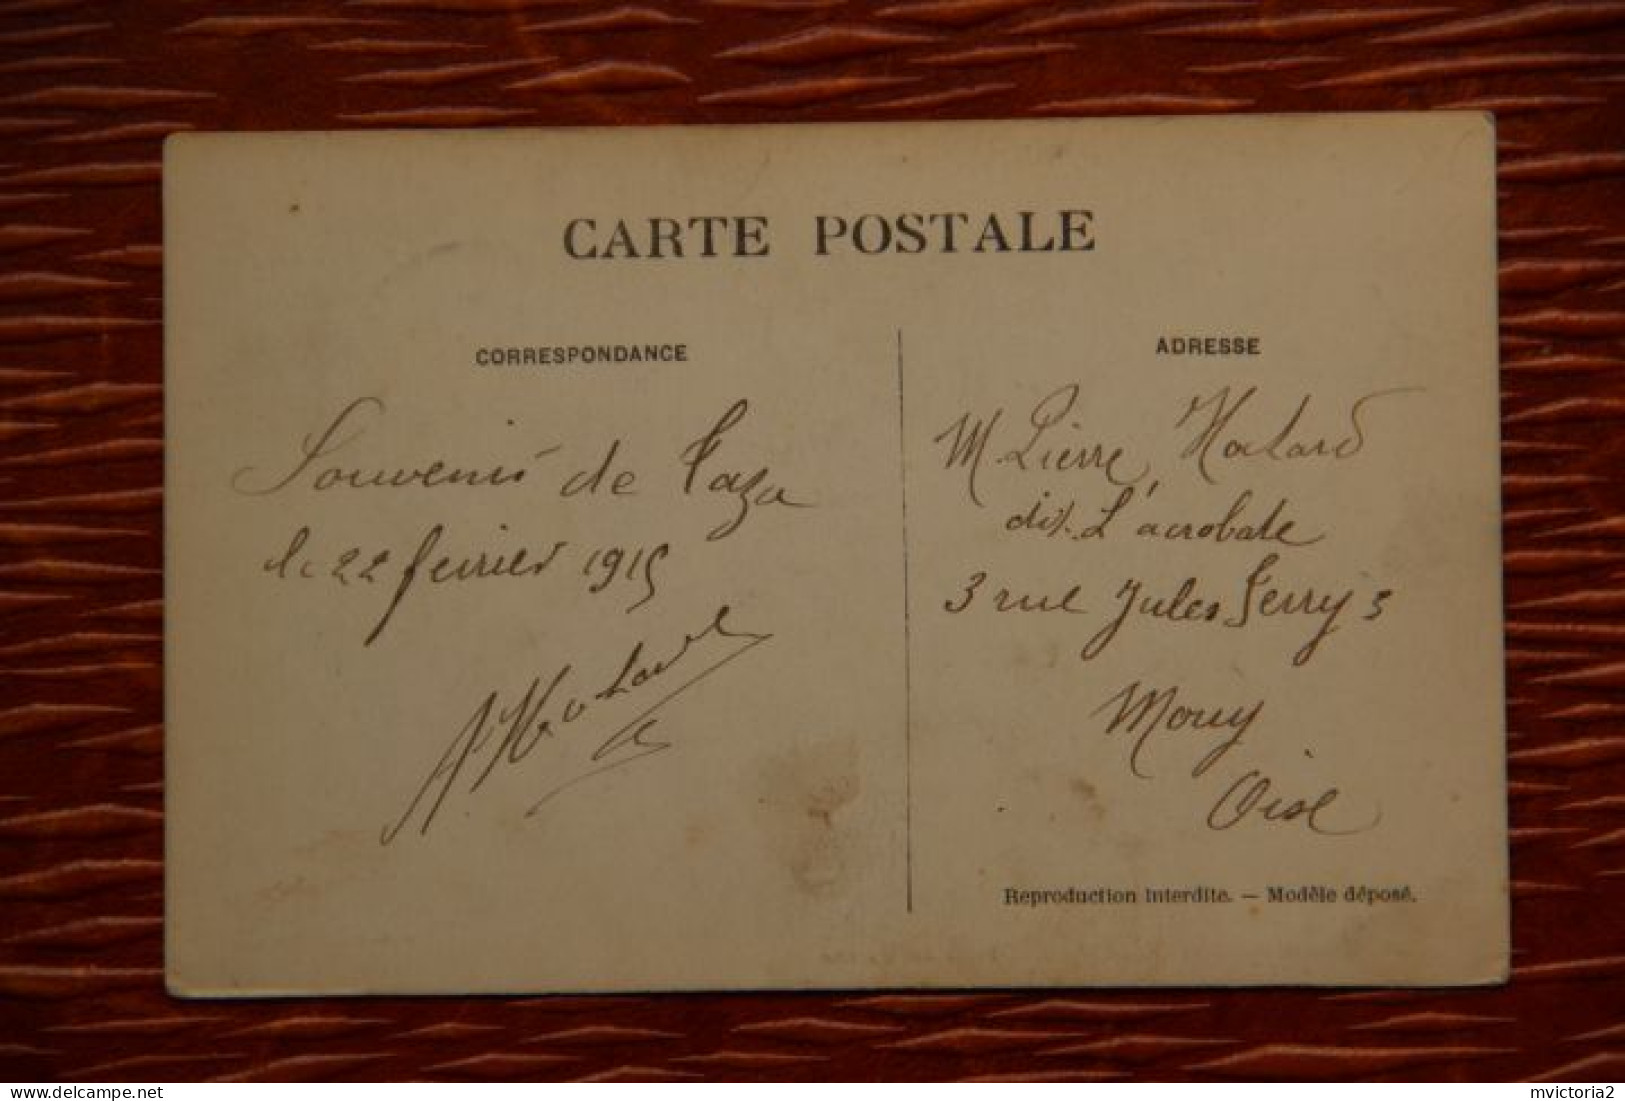 CARTE POSTALE
CORRESPONDANCE
Souvenir de Taza
le 22 fevrier 1915
ADRESSE
M. Pierre Hochard
dit. L'acrobate
3 rue Jules Ferry 3
Mouy
Oise
Reproduction interdite. — Modèle déposé.
delcampe.net
mvictoria2